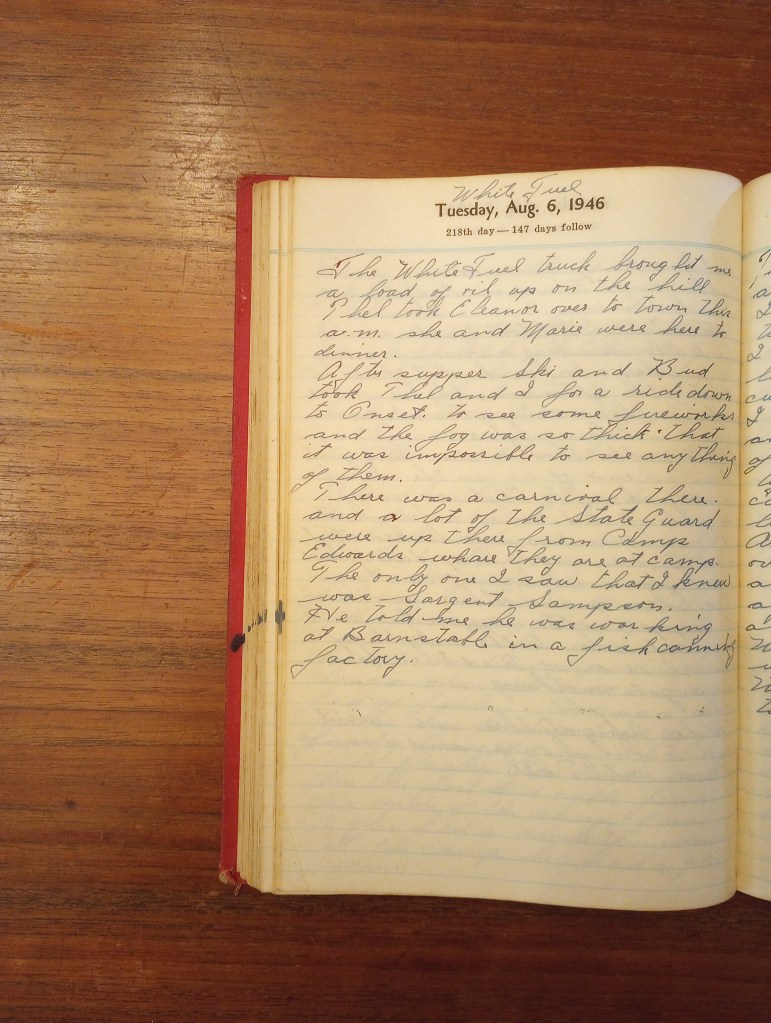 White Fuel
Tuesday, Aug. 6, 1946
218th day — 147 days follow
The White Fuel truck brought me
a load of oil up on the hill
Thel took Eleanor over to town this
a.m. she and Marie were here to
dinner.
After supper Ski and Bud
took Thel and I for a ride down
to Onset. to see some fireworks
and the fog was so thick that
it was impossible to see any thing
of them.
There was a carnival there.
and a lot of the State Guard
were up there from Camp
Edwards whare they are at camp.
The only one I saw that I knew
was Sargent Sampson.
He told me he was working
at Barnstable in a fish canning
factory.